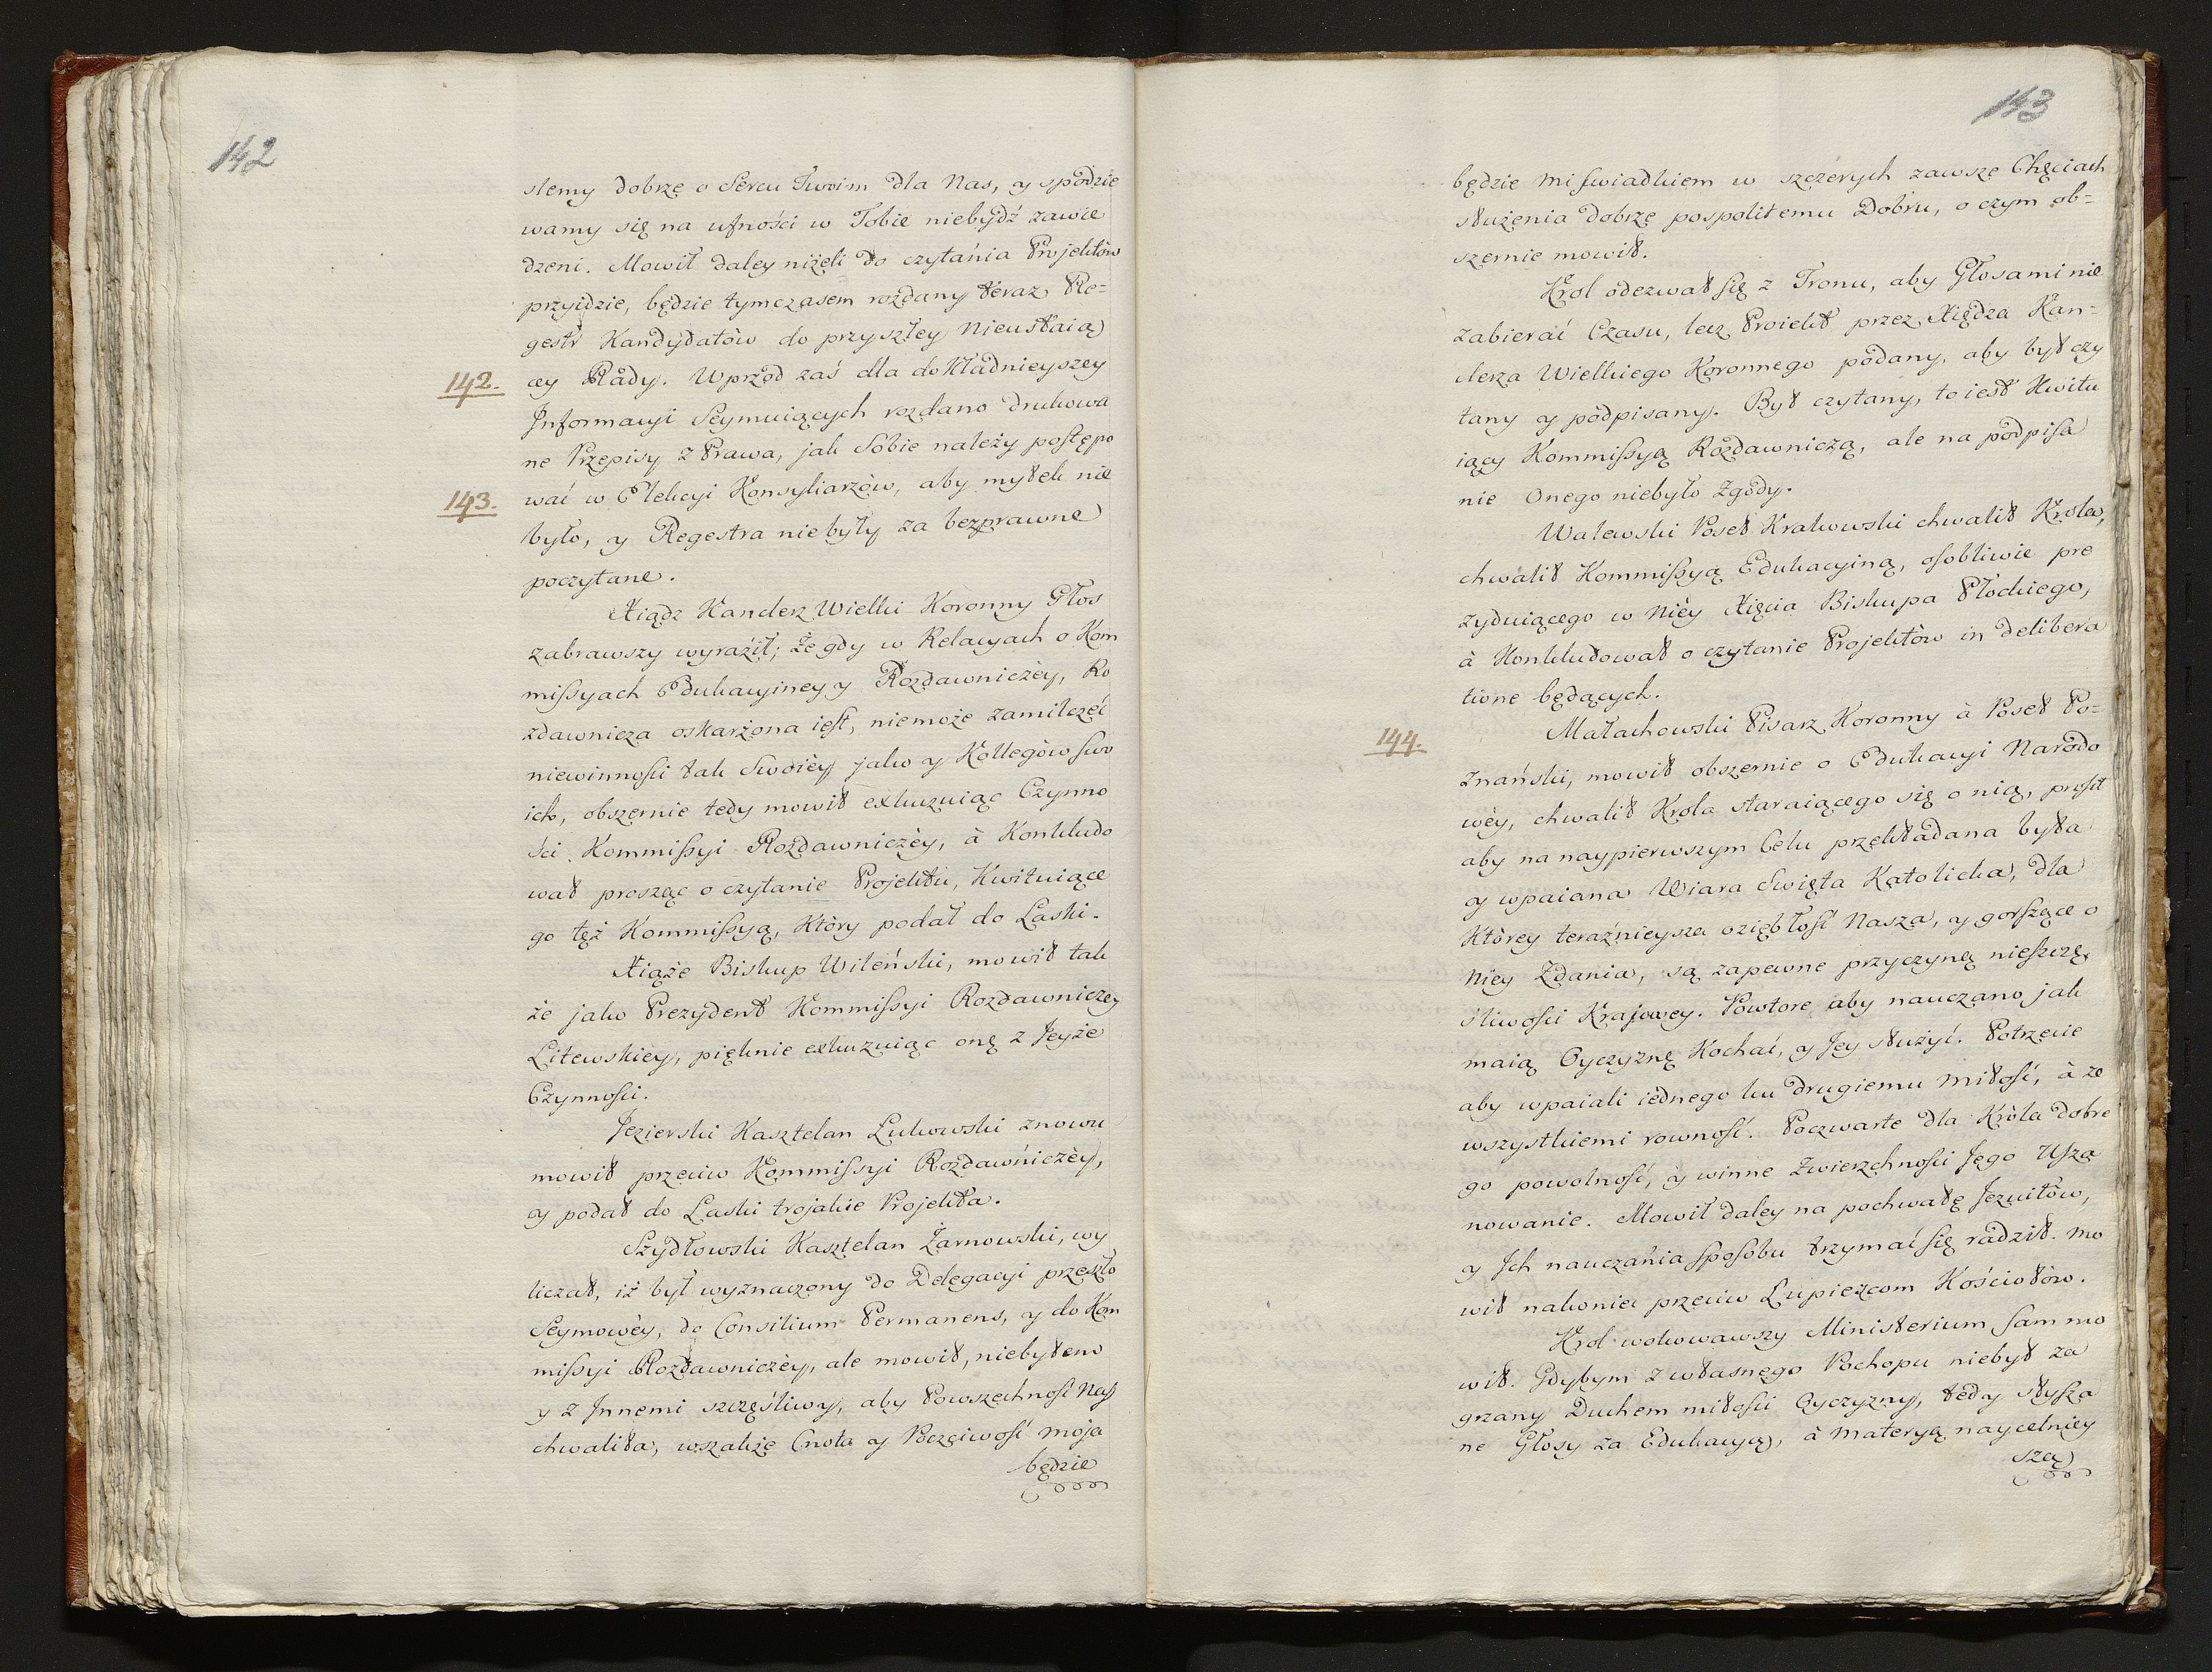 142
slemy dobrze o Sercu Twoim dla Nas, y spodzie
wamy się na ufności w Tobie niebydź zawie
dzeni. Mowił daley niżeli do czytánia Projektòw
przyidzie, będzie tymczasem rozdany teraz Re=
gestr Kandydatòw do przyszłey Nieustaią
142. cey Rady. Wprzod zaś dla dokładnieyszey
Jnformacyi Seymuiących rozdano drukowa
ne Przepisy z Prawa, jak Sobie należy postępo
143. wać w Elekcyi Konsyliarzòw, aby myłek nie
było, y Regestra niebyły za bezprawne
poczytane.
Xiądz Kanclerz Wielki Koronny Głos
zabrawszy wyraźił; Że gdy w Relacyach o Kom
missyach Edukacyiney y Rozdawniczèy, Ro
zdawnicza oskarżona iest, niemoże zamilczéć
niewinności tak Swoièy jako y Kollegòw swo
ich, obszernie tedy mowił exkuzuiąc Czynno
ści Kommissyi Rozdawniczèy, à Konkludo
wał prosząc o czytanie Projektu, Kwituiące
go też Kommissyą, Ktòry podał do Laski.
Xiąże Biskup Wileński, mowił tak
że jako Prezydent Kommissyi Rozdawniczey
Litewskiey, pięknie exkuzuiąc onę z Jeyże
Czynności.
Jezierski Kasztelan Łukowski znowu
mowił przeciw Kommissyi Rozdawńiczèy,
y podał do Laski trojakie Projekta.
Szydłowski Kasztelan Żarnowski, wy
liczał, iż był wyznaczony do Delegacyi przeszło
Seymowèy, do Consilium Permanens, y do Kom
missyi Rozdawniczèy, ale mowił, niebyłem
y z Jnnemi szczęśliwy, aby Powszechność Nas
chwaliła, wszakże Cnota y Poczciwość moja
będzie
143
będzie mi swiadkiem w szczérych zawsze Chęciach
służenia dobrze pospolitemu Dobru, o czym ob=
szernie mowił.
Krol odezwał się z Tronu, aby Głosami nie
zabierać Czasu, lecz Proiekt przez Xiędza Kan=
clerza Wielkiego Koronnego podany, aby był czy
tany y podpisany. Był czytany, to iest Kwitu
iący Kommissyą Rozdawniczą, ale na podpisa
nie Onego niebyło Zgody.
Walewski Poseł Krakowski chwalił Krola,
chwalił Kommissyą Edukacyiną, osobliwie pre
zyduiącego w Nièy Xięcia Biskupa Płockiego,
à Konkludował o czytanie Projektòw in delibera
tione będących.
144. Małachowski Pisarz Koronny à Poseł Po=
znański, mowił obszernie o Edukacyi Narodo
wèy, chwalił Krola staraiącego się o nią, prosił
aby na naypierwszym Celu przekładana była
y wpaiana Wiara Swięta Katolicka, dla
Ktòrey teraźnieysza oziębłość Nasza, y gorszące o
Niey Zdania, są zapewne przyczyną nieszczę
śliwości Krajowey. Powtore aby nauczano jak
maią Oyczyznę Kochać, y Jey służyć. Potrzecie
aby wpaiali iednego ku drugiemu miłość, à ze
wszystkiemi rowność. Poczwarte dla Kròla dobre
go powolność, y winne Zwierzchności Jego Usza
nowanie. Mowił daley na pochwałę Jezuitòw,
y Jch nauczánia sposobu trzymać się radził. Mo
wił nakoniec przeciw Łupieżcom Kościołòw.
Krol wokowawszy Ministerium sam mo
wił. Gdybym z własnego Pochopu niebył za
grzany Duchem miłości Oyczyzny, tedy słysza
ne Głosy za Edukacyą, à Materyą naycelniey
szą